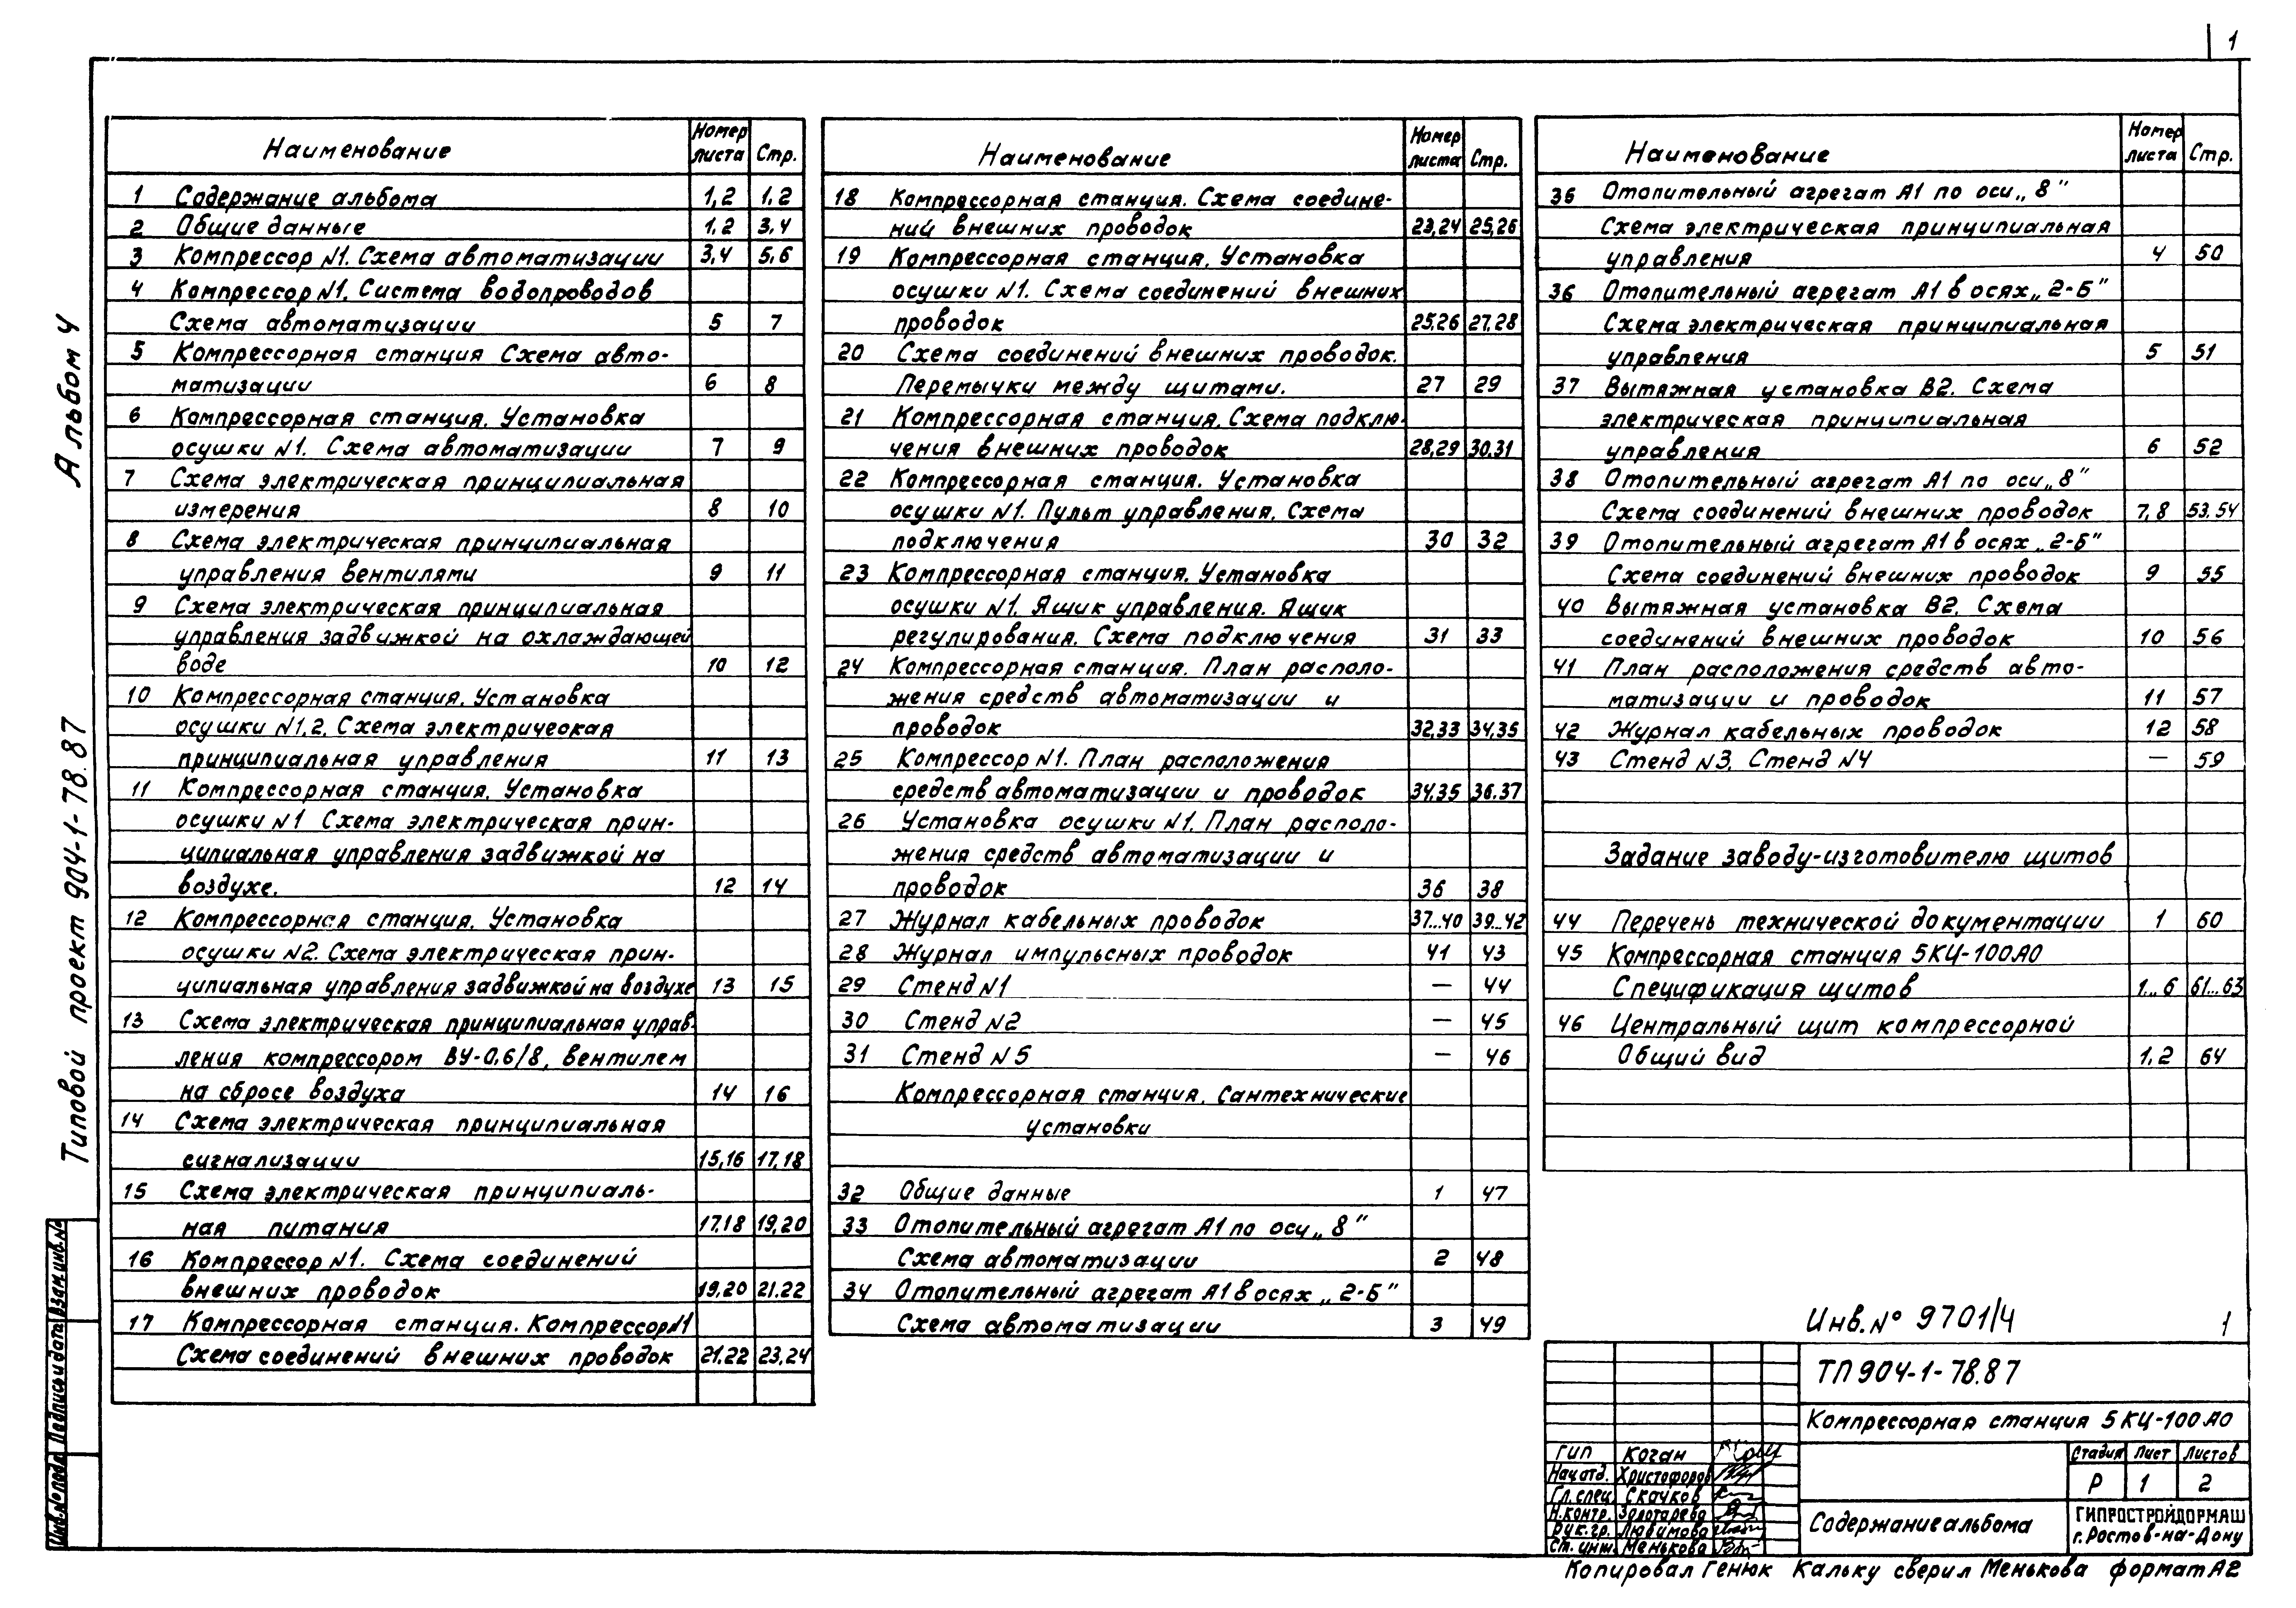 1
Альбом 4
Типовой проект 904-1-78.87
Инв.№подл. Подпись и дата Взам.инв.№
Наименование Номер листа Стр.
1 Содержание альбома 1,2 1,2
2 Общие данные 1,2 3,4
3 Компрессор №1. Схема автоматизации 3,4 5,6
4 Компрессор №1. Система водопроводов
Схема автоматизации 5 7
5 Компрессорная станция Схема авто-
матизации 6 8
6 Компрессорная станция. Установка
осушки №1. Схема автоматизации 7 9
7 Схема электрическая принципиальная
измерения 8 10
8 Схема электрическая принципиальная
управления вентилями 9 11
9 Схема электрическая принципиальная
управления задвижкой на охлаждающей
воде 10 12
10 Компрессорная станция. Установка
осушки №1,2. Схема электрическая
принципиальная управления 11 13
11 Компрессорная станция. Установка
осушки №1 Схема электрическая прин-
ципиальная управления задвижкой на
воздухе. 12 14
12 Компрессорная станция. Установка
осушки №2. Схема электрическая прин-
ципиальная управления задвижкой на воздухе 13 15
13 Схема электрическая принципиальная управ-
ления компрессором ВУ-0,6/8, вентилем
на сбросе воздуха 14 16
14 Схема электрическая принципиальная
сигнализации 15,16 17,18
15 Схема электрическая принципиаль-
ная питания 17.18 19,20
16 Компрессор №1. Схема соединений
внешних проводок 19,20 21.22
17 Компрессорная станция. Компрессор№1
Схема соединений внешних проводок 21.22 23,24
Наименование Номер листа Стр.
18 Компрессорная станция. Схема соедине-
ний внешних проводок 23,24 25,26
19 Компрессорная станция. Установка
осушки №1. Схема соединений внешних
проводок 25,26 27,28
20 Схема соединений внешних проводок.
Перемычки между щитами. 27 29
21 Компрессорная станция. Схема подклю-
чения внешних проводок 28,29 30,31
22 Компрессорная станция. Установка
осушки №1. Пульт управления. Схема
подключения 30 32
23 Компрессорная станция. Установка
осушки №1. Ящик управления. Ящик
регулирования. Схема подключения 31 33
24 Компрессорная станция. План располо-
жения средств автоматизации и
проводок 32,33 34,35
25 Компрессор №1. План расположения
средств автоматизации и проводок 34,35 36.37
26 Установка осушки №1. План располо-
жения средств автоматизации и
проводок 36 38
27 Журнал кабельных проводок 37...40 39...42
28 Журнал импульсных проводок 41 43
29 Стенд №1 — 44
30 Стенд №2 — 45
31 Стенд №5 — 46
Компрессорная станция. Сантехнические
установки
32 Общие данные 1 47
33 Отопительный агрегат А1 по оси „8"
Схема автоматизации 2 48
34 Отопительный агрегат А1 в осях „2-Б"
Схема автоматизации 3 49
Наименование Номер листа Стр.
35 Отопительный агрегат А1 по оси „8"
Схема электрическая принципиальная
управления 4 50
36 Отопительный агрегат А1 в осях „2-Б"
Схема электрическая принципиальная
управления 5 51
37 Вытяжная установка В2. Схема
электрическая принципиальная
управления 6 52
38 Отопительный агрегат А1 по оси „8"
Схема соединений внешних проводок 7,8 53.54
39 Отопительный агрегат А1 в осях „2-Б"
Схема соединений внешних проводок 9 55
40 Вытяжная установка В2. Схема
соединений внешних проводок 10 56
41 План расположения средств авто-
матизации и проводок 11 57
42 Журнал кабельных проводок 12 58
43 Стенд №3. Стенд №4 — 59
Задание заводу-изготовителю щитов
44 Перечень технической документации 1 60
45 Компрессорная станция 5КЦ-100А0
Спецификация щитов 1...6 61...63
46 Центральный щит компрессорной
Общий вид 1,2 64
Инв.№ 9701/4 1
ТП 904-1-78.87
Компрессорная станция 5КЦ-100А0
ГИП Коган
Нач.отд. Христофоров
Гл.спец. Скачков
Н.контр. Золотарева
Рук.гр. Любимова
Ст.инж. Менькова
Стадия Лист Листов
Р 1 2
Содержание альбома
ГИПРОСТРОЙДОРМАШ
г.Ростов-на-Дону
Копировал Генюк Кальку сверил Менькова формат А2